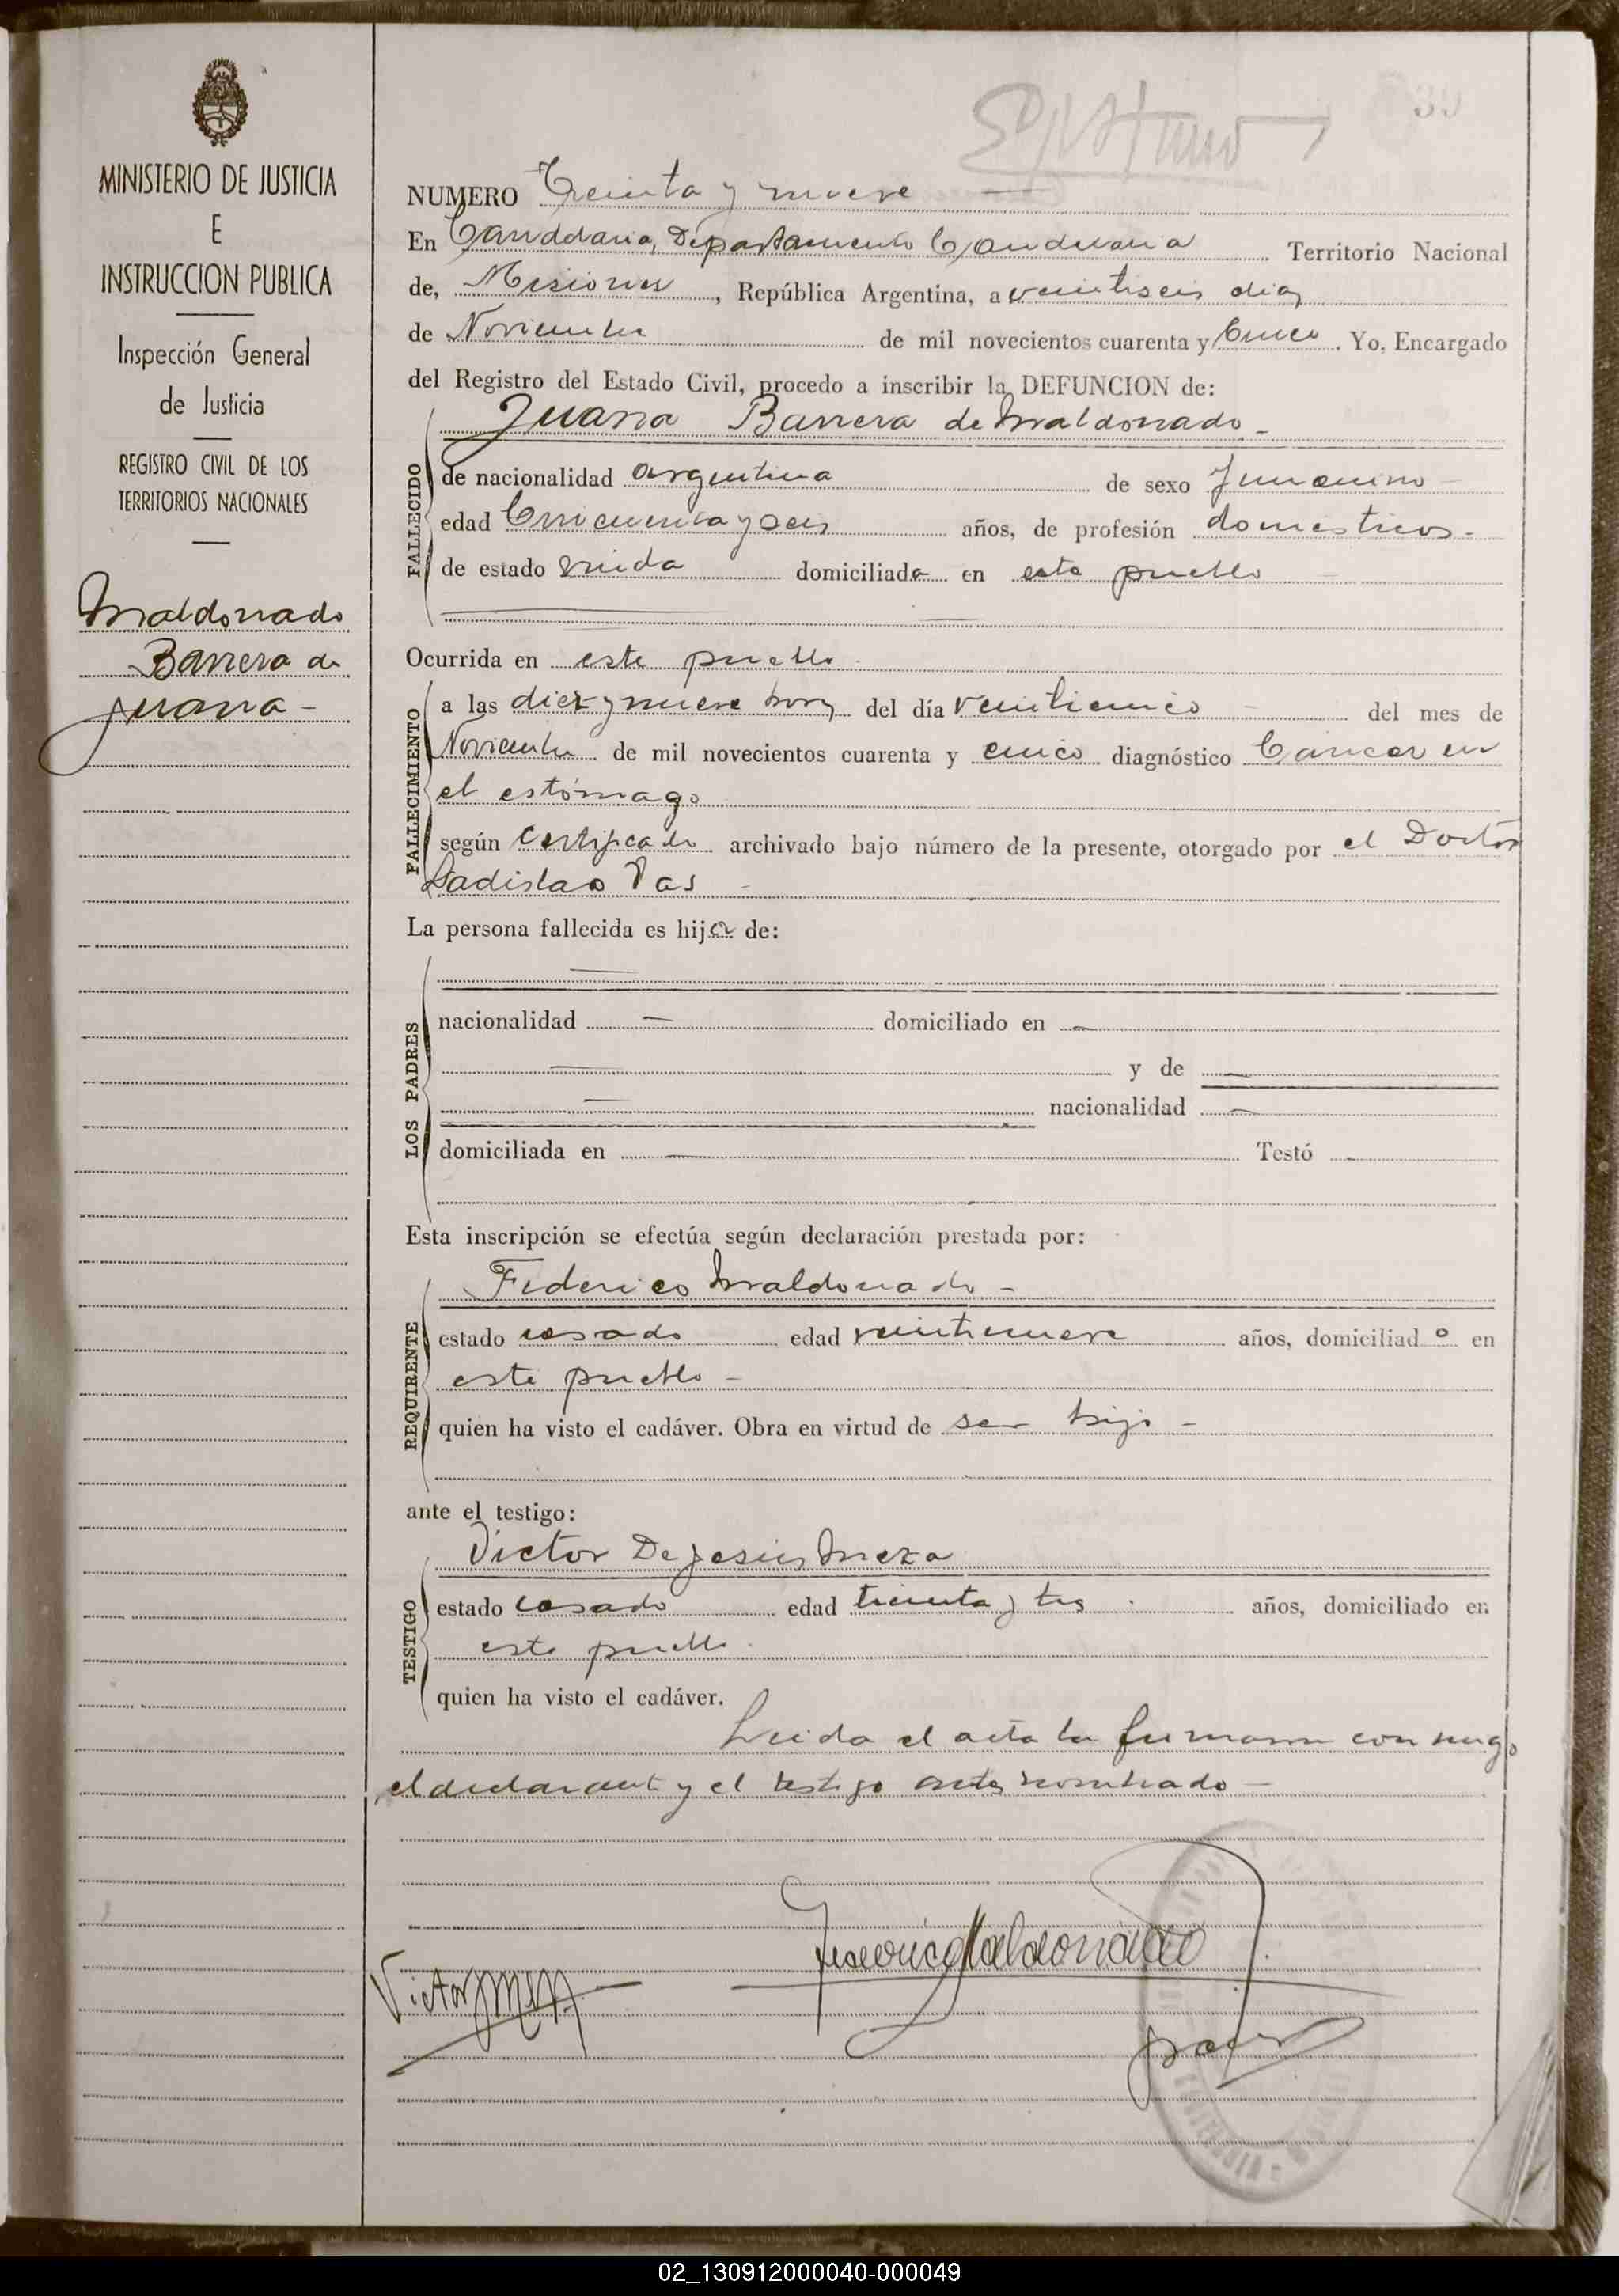 MINISTERIO DE JUSTICIA
E
INSTRUCCION PUBLICA
Inspección General
de Justicia
REGISTRO CIVIL DE LOS
TERRITORIOS NACIONALES
Maldonado
Barrera de
Juana -
39
NUMERO Treinta y nueve
En Candelaria, Departamento Candelaria Territorio Nacional
de, Misiones, República Argentina, a veintiseis dias
de Noviembre de mil novecientos cuarenta y Cinco. Yo, Encargado
del Registro del Estado Civil, procedo a inscribir la DEFUNCION de:
Juana Barrera de Maldonado -
FALLECIDO
de nacionalidad argentina de sexo femenino -
edad Cincuenta y seis años, de profesión domesticos -
de estado viuda domiciliada en este pueblo
Ocurrida en este pueblo
FALLECIMIENTO
a las diez y nueve horas del día veinticinco del mes de
Noviembre de mil novecientos cuarenta y cinco diagnóstico Cancer en
el estómago
según Certificado archivado bajo número de la presente, otorgado por el Doctor
Ladislao
La persona fallecida es hija de:
LOS PADRES
nacionalidad — domiciliado en —
— y de —
— nacionalidad —
domiciliada en — Testó
Esta inscripción se efectúa según declaración prestada por:
Federico Maldonado -
REQUIRENTE
estado casado edad veintinueve años, domiciliado en
este pueblo -
quien ha visto el cadáver. Obra en virtud de ser hijo -
ante el testigo:
Victor De Jesús Meza
TESTIGO
estado casado edad treinta y tres años, domiciliado en
este pueblo
quien ha visto el cadáver.
Leida el acta la firmaron conmigo
el declarante y el testigo antes nombrado -
Federico Maldonado
Victor
02_130912000040-000049